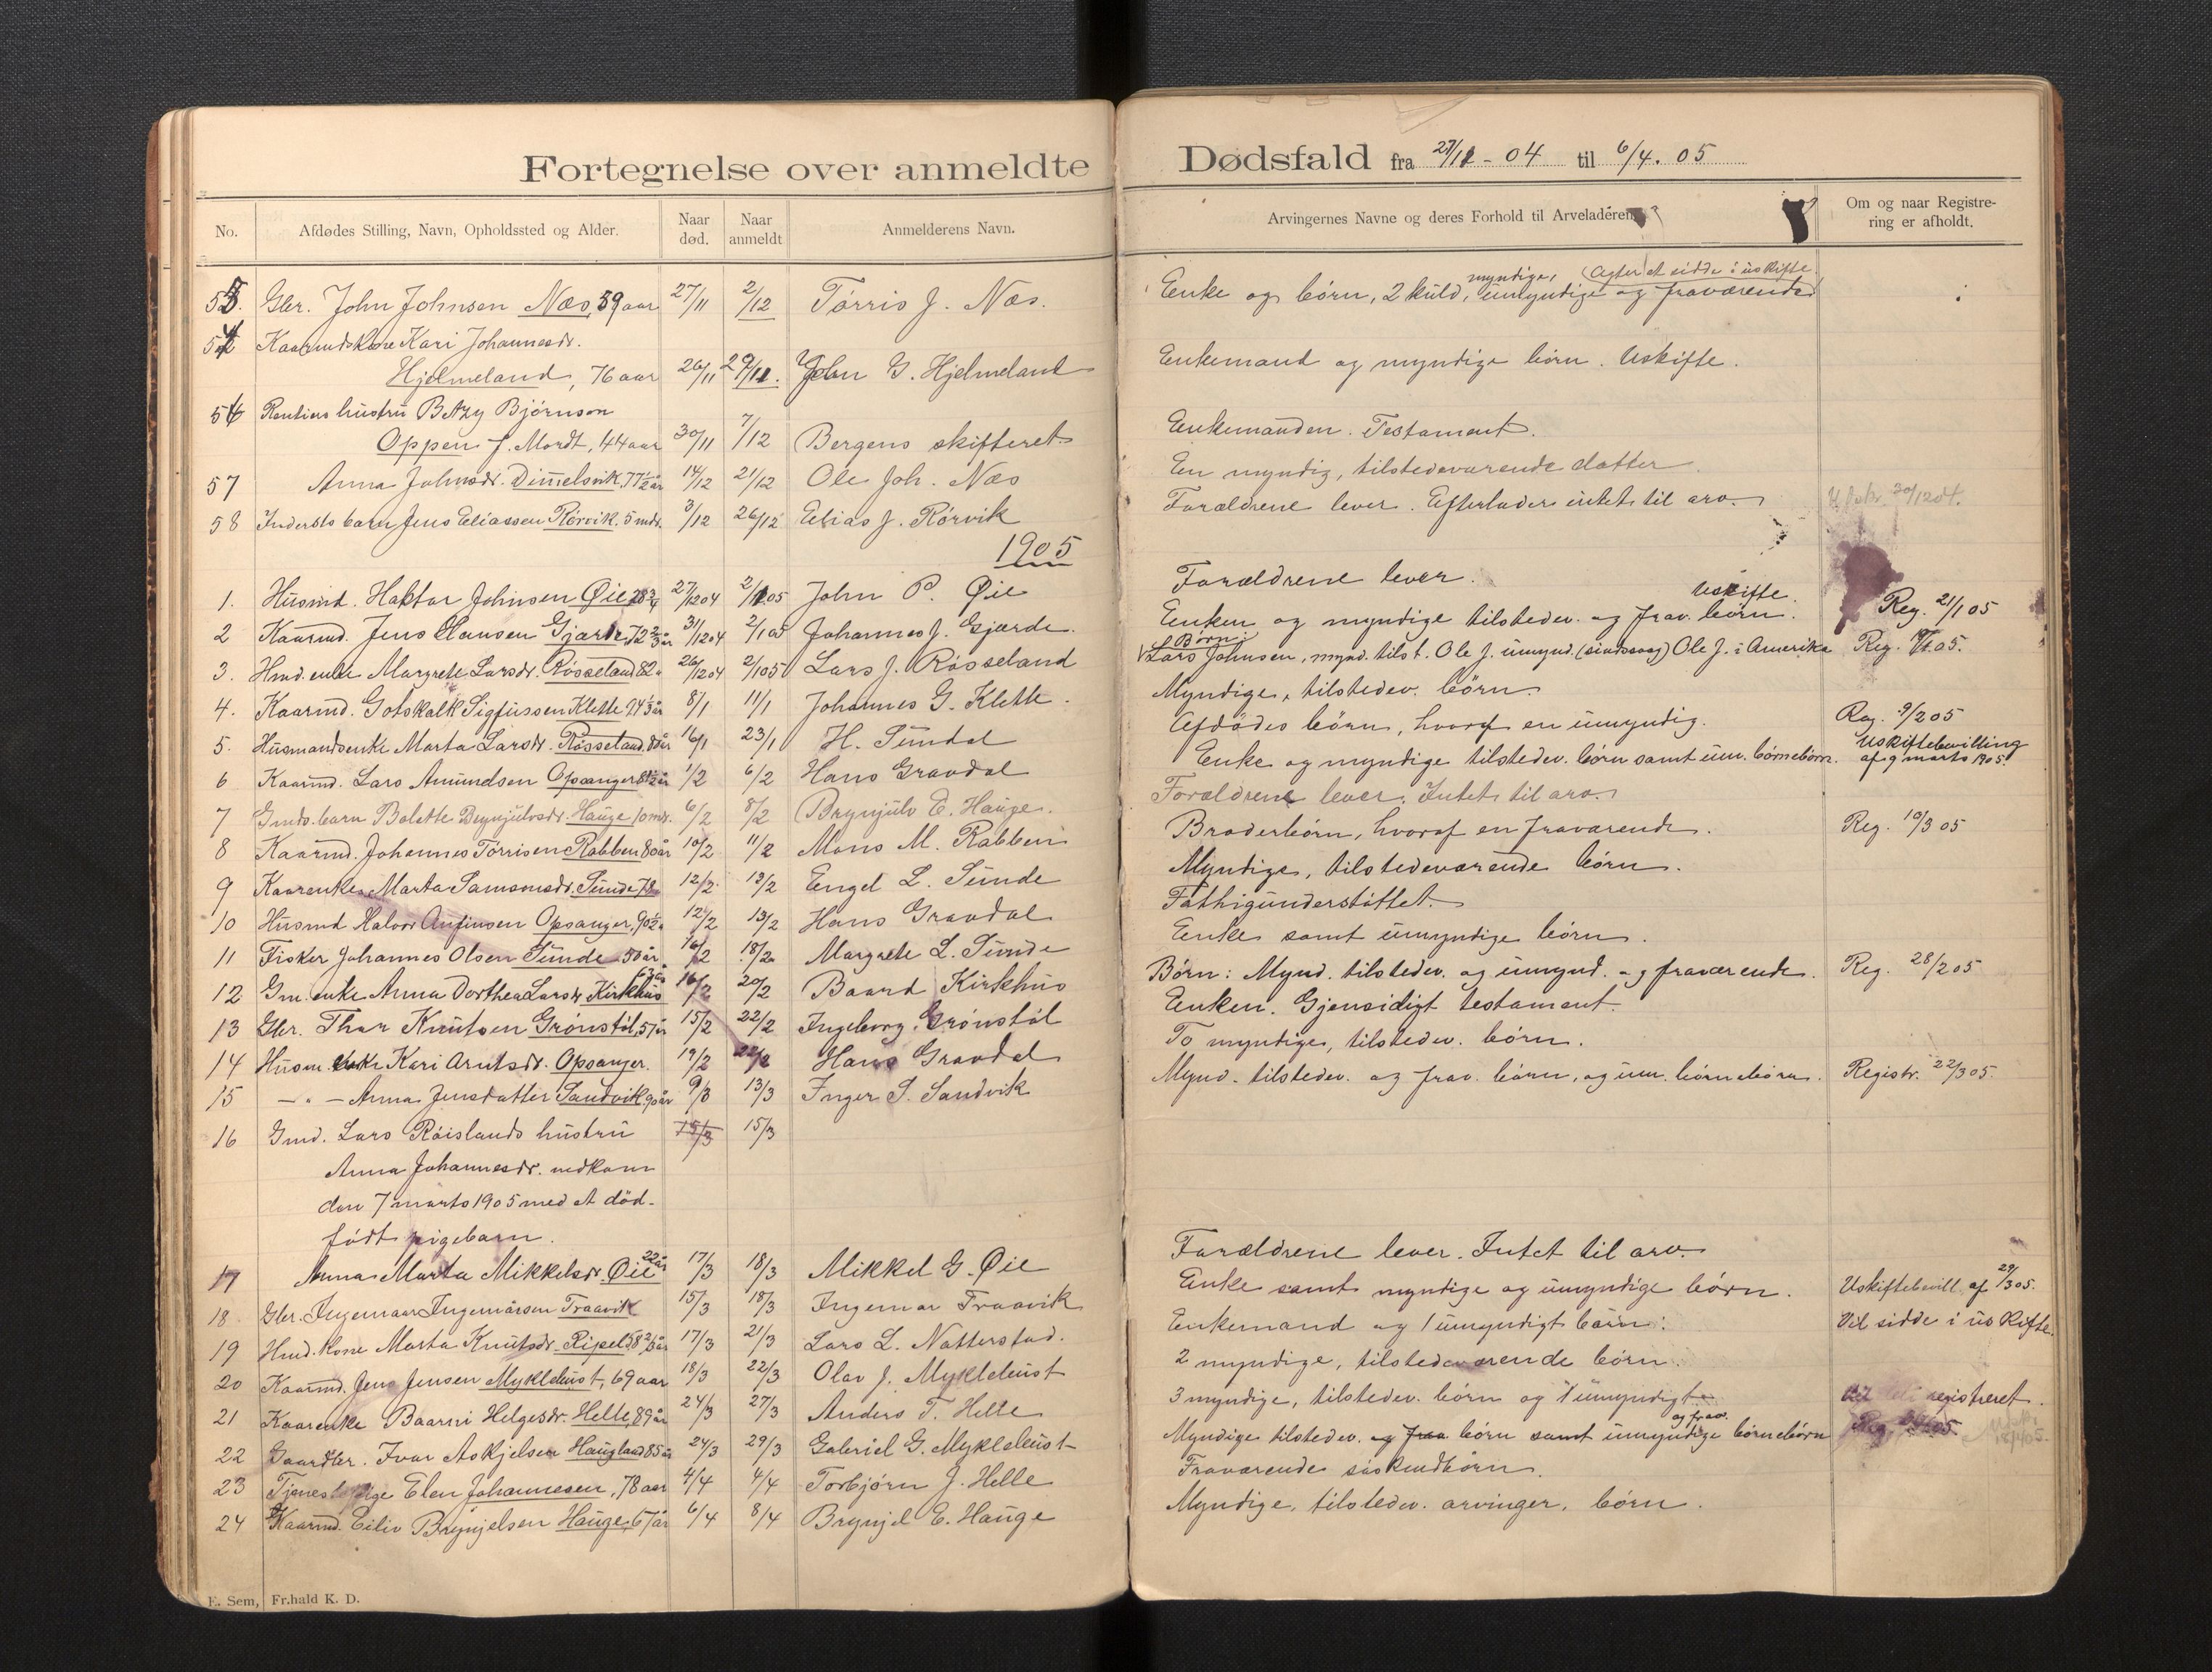 Fortegnelse over anmeldte Dødsfald fra 27/11 - 04 til 6/4. 05
No. Afdødes Stilling, Navn, Opholdssted og Alder. Naar død. Naar anmeldt Anmelderens Navn. Arvingernes Navne og deres Forhold til Arveladeren Om og naar Registrering er afholdt.
myndige, (agter at sidde i uskifte.
55. Gbr. John Johnsen Næs, 59 aar 27/11 2/12 Tørris J. Næs. Enke og børn, 2 kuld, umyndige og fraværende
Kaarmdskone Kari Johannesdr.
Hjelmeland, 76 aar 26/11 29/11. John G. Hjelmeland Enkemand og myndige børn. Uskifte.
56 Rentiers hustru Betzy Bjørnson
Oppen f. Mordt, 44 aar 30/11 7/12 Bergens skifteret Enkemanden. Testament.
57 Anna Johnsdr. Dimelsvik, 77 1/2 år 14/12 21/12 Ole Joh. Næs En myndig, tilstedeværende datter.
58 Indersts barn Jens Eliassen Rørvik. 5 mdr. 3/12 26/12 Elias J. Rørvik Forældrene lever. Efterlader intet til arv. 30/12 04.
1905
1. Husmd. Haktor Johnsen Øie, 28 3/4 27/12 04 2/1 05 John P. Øie Forældrene lever.
Uskifte.
2 Kaarmd. Jens Hansen Gjærde, 72 2/3 år 31/12 04 2/1 05 Johannes J. Gjærde. Enken og myndige tilstedev. og frav. børn. Reg. 21/1 05
Børn:
3. Hmd. enke Margrete Larsdr. Røsseland 82 26/12 04 2/1 05 Lars J. Røsseland Lars Johnsen, mynd. tilst. Ole J. umynd. (sindssvag) Ole J. i Amerika Reg. 05.
4. Kaarmd. Gotskalk Sigfussen Klette 94 1/3 år 8/1 11/1 Johannes G. Klette. Myndige, tilstedev. børn.
5. Husmandsenke Marta Larsdr. Røsseland, 80 år 16/1 23/1 H. Sundal Afdødes børn, hvoraf en umyndig. Reg. 9/2 05
6 Kaarmd. Lars Amundsen Opsanger 81 1/2 år 1/2 6/2 Hans Gravdal Enke og myndige tilstedev. børn samt um. børnebørn. Uskiftebevilling
af 9 marts 1905.
7 Gmds. barn Bolette Brynjulvsdr. Hauge 10 mdr. 6/2 8/2 Brynjulv E. Hauge. Forældrene lever. Intet til arv.
8 Kaarmd. Johannes Tørrisen Rabben 80 år 10/2 11/2 Mons M. Rabben Broderbørn, hvoraf en fraværende. Reg. 10/3 05
9 Kaarenke Marta Samsonsdr. Sunde, 78 12/2 13/2 Engel L. Sunde Myndige, tilstedeværende børn.
10 Husmd Halvor Anfinsen Opsanger, 90 1/2 12/2 13/2 Hans Gravdal Fattigunderstøttet.
11 Fisker Johannes Olsen Sunde 50 år 16/2 18/2 Margrete L. Sunde Enke samt umyndige børn.
12 Gm. enke Anna Dorthea Larsdr. Kirkhus 63 år 16/2 20/2 Baard Kirkhus Børn: Mynd. tilstedev. og umynd. og fraværende. Reg. 28/2 05
13 Gbr. Thor Knutsen Grønstøl, 57 år 15/2 22/2 Ingeborg Grønstøl Enken. Gjensidigt testament.
14 Husm. enke Kari Arntsdr. Opsanger. 19/2 22/2 Hans Gravdal To myndige, tilstedev. børn.
15 - " - Anna Jensdatter Sandvik, 90 år 9/3 13/3 Inger S. Sandvik Mynd. tilstedev. og frav. børn, og um. børnebørn. Registr. 22/3 05.
16 Gmd. Lars Røislands hustru 15/3 15/3
Anna Johannesdr. nedkom
den 7 marts 1905 med et død-
født pigebarn.
17 Anna Marta Mikkelsdr. Øie 22 år 17/3 18/3 Mikkel G. Øie Forældrene lever. Intet til arv.
18. Gbr. Ingemaar Ingemarsen Traavik 15/3 18/3 Ingemar Traavik Enke samt myndige og umyndige børn. Uskiftebevill. af 29/3 05.
19 Hmd. kone Marta Knutsdr. Ripel 17/3 21/3 Lars L. Natterstad. Enkemand og 1 umyndigt barn. Vil sidde i uskifte.
20 Kaarmd. Jens Jensen Myklebust, 69 aar 18/3 22/3 Olav J. Myklebust 2 myndige, tilstedeværende børn.
21 Kaarenke Baarni Helgesdr. Helle, 89 år 24/3 27/3 Anders T. Helle 3 myndige, tilstedev. børn og 1 umyndigt registreret.
og frav.
22 Gaardbr. Ivar Askjelsen Haugland 85 år 24/3 29/3 Gabriel G. Myklebust Myndige tilstedev. og frav børn samt umyndige børnebørn Reg. 05.
23 Tjenestepige Elen Johannesen, 78 aar 4/4 4/4 Torbjørn J. Helle Fraværende søskendbørn.
24 Kaarmd. Eiliv Brynjelsen Hauge, 67 år 6/4 8/4 Brynjel E. Hauge Myndige, tilstedev. arvinger, børn.
E. Sem, Fr.hald K. D.